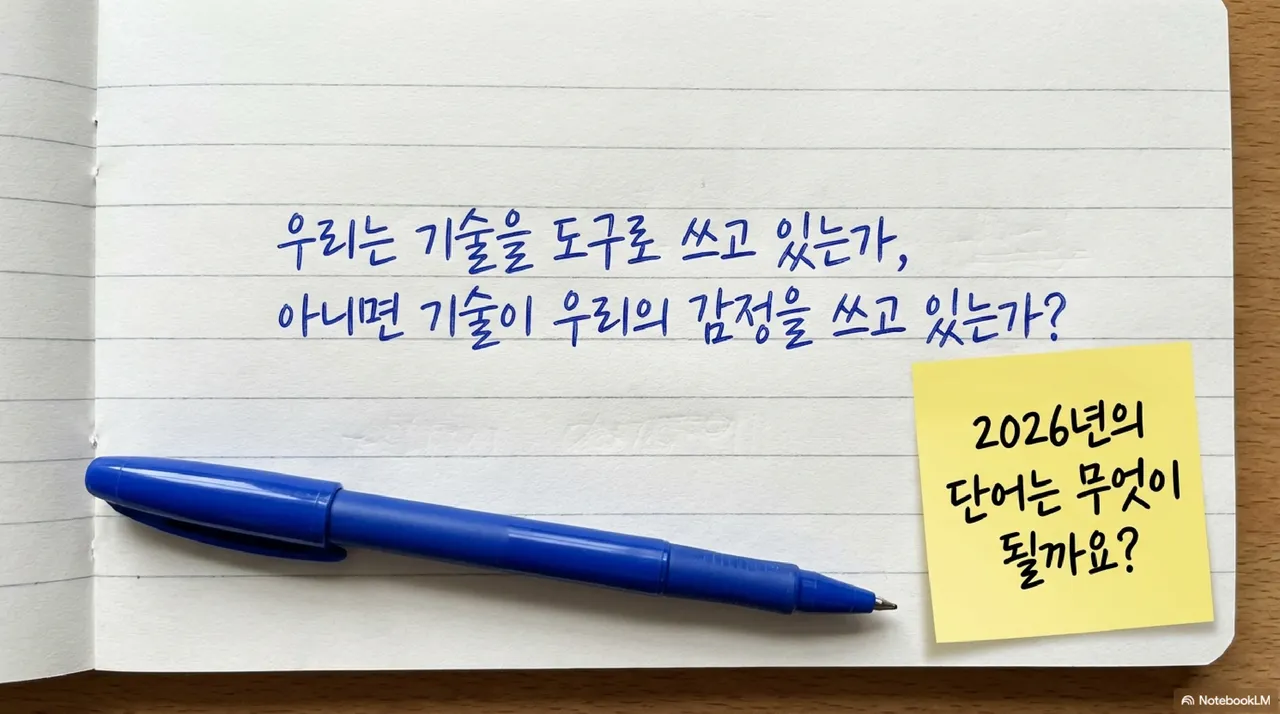 우리는 기술을 도구로 쓰고 있는가,
아니면 기술이 우리의 감정을 쓰고 있는가?
2026년의
단어는 무엇이
될까요?
NotebookLM